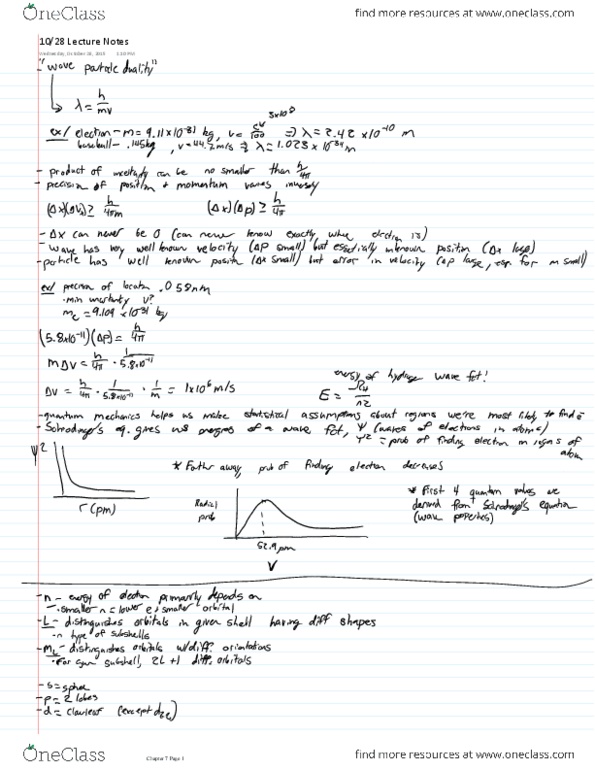 OneClass
find more resources at www.oneclass.com
10/28 Lecture Notes
Wednesday, October 28, 2015
"wave particle duality"
λ = h/mv
3x10⁸
ex/ electron - m = 9.11x10⁻³¹ kg, v = c/100 ⇒ λ = 2.42 x10⁻¹⁰ m
baseball - .145kg, v=44.2m/s ⇒ λ = 1.023 x10⁻³⁴ m
- product of uncertainty can be no smaller than h/4π
- precision of position + momentum varies inversely
(Δx)(ΔVx) ≥ h/4πm (Δx)(Δp) ≥ h/4π
- Δx can never be 0 (can never know exactly where electron is)
- wave has very well known velocity (Δp small) but essentially unknown position (Δx large)
- particle has well known position (Δx small) but error in velocity (Δp large, esp. for m small)
ex/ precision of location .058nm
• min uncertainty v?
me = 9.109 x10⁻³¹ kg
(5.8x10⁻¹¹)(Δp) = h/4π
mΔv = h/4π · 1/5.8x10⁻¹¹
energy of hydrogen wave fct!
Δv = h/4π · 1/5.8x10⁻¹¹ · 1/m = 1x10⁶ m/s
E = -RH/n2
- quantum mechanics helps us make statistical assumptions about regions we're most likely to find e
- Schrodinger's eq. gives us of a wave fct, ψ (waves of electrons in atoms)
ψ² = prob of finding electron in region of atom
ψ²
* Farther away prob of finding electron decreases
r (pm)
Radial prob
52.9 pm
* First 4 quantum values we
derived from Schrodinger's equation
(wave properties)
- n - energy of electron primarily depends on
• smaller n = lower e, smaller orbital
- L - distinguishes orbitals in given shell having diff shapes
• n type of subshells
- mL - distinguishes orbitals w/ diff. orientations
• For given subshell, 2L +1 diff. orbitals
- s = sphere
- p = 2 lobes
- d = cloverleaf (except dz2)
OneClass
Chapter 7 Page 1
find more resources at www.oneclass.com